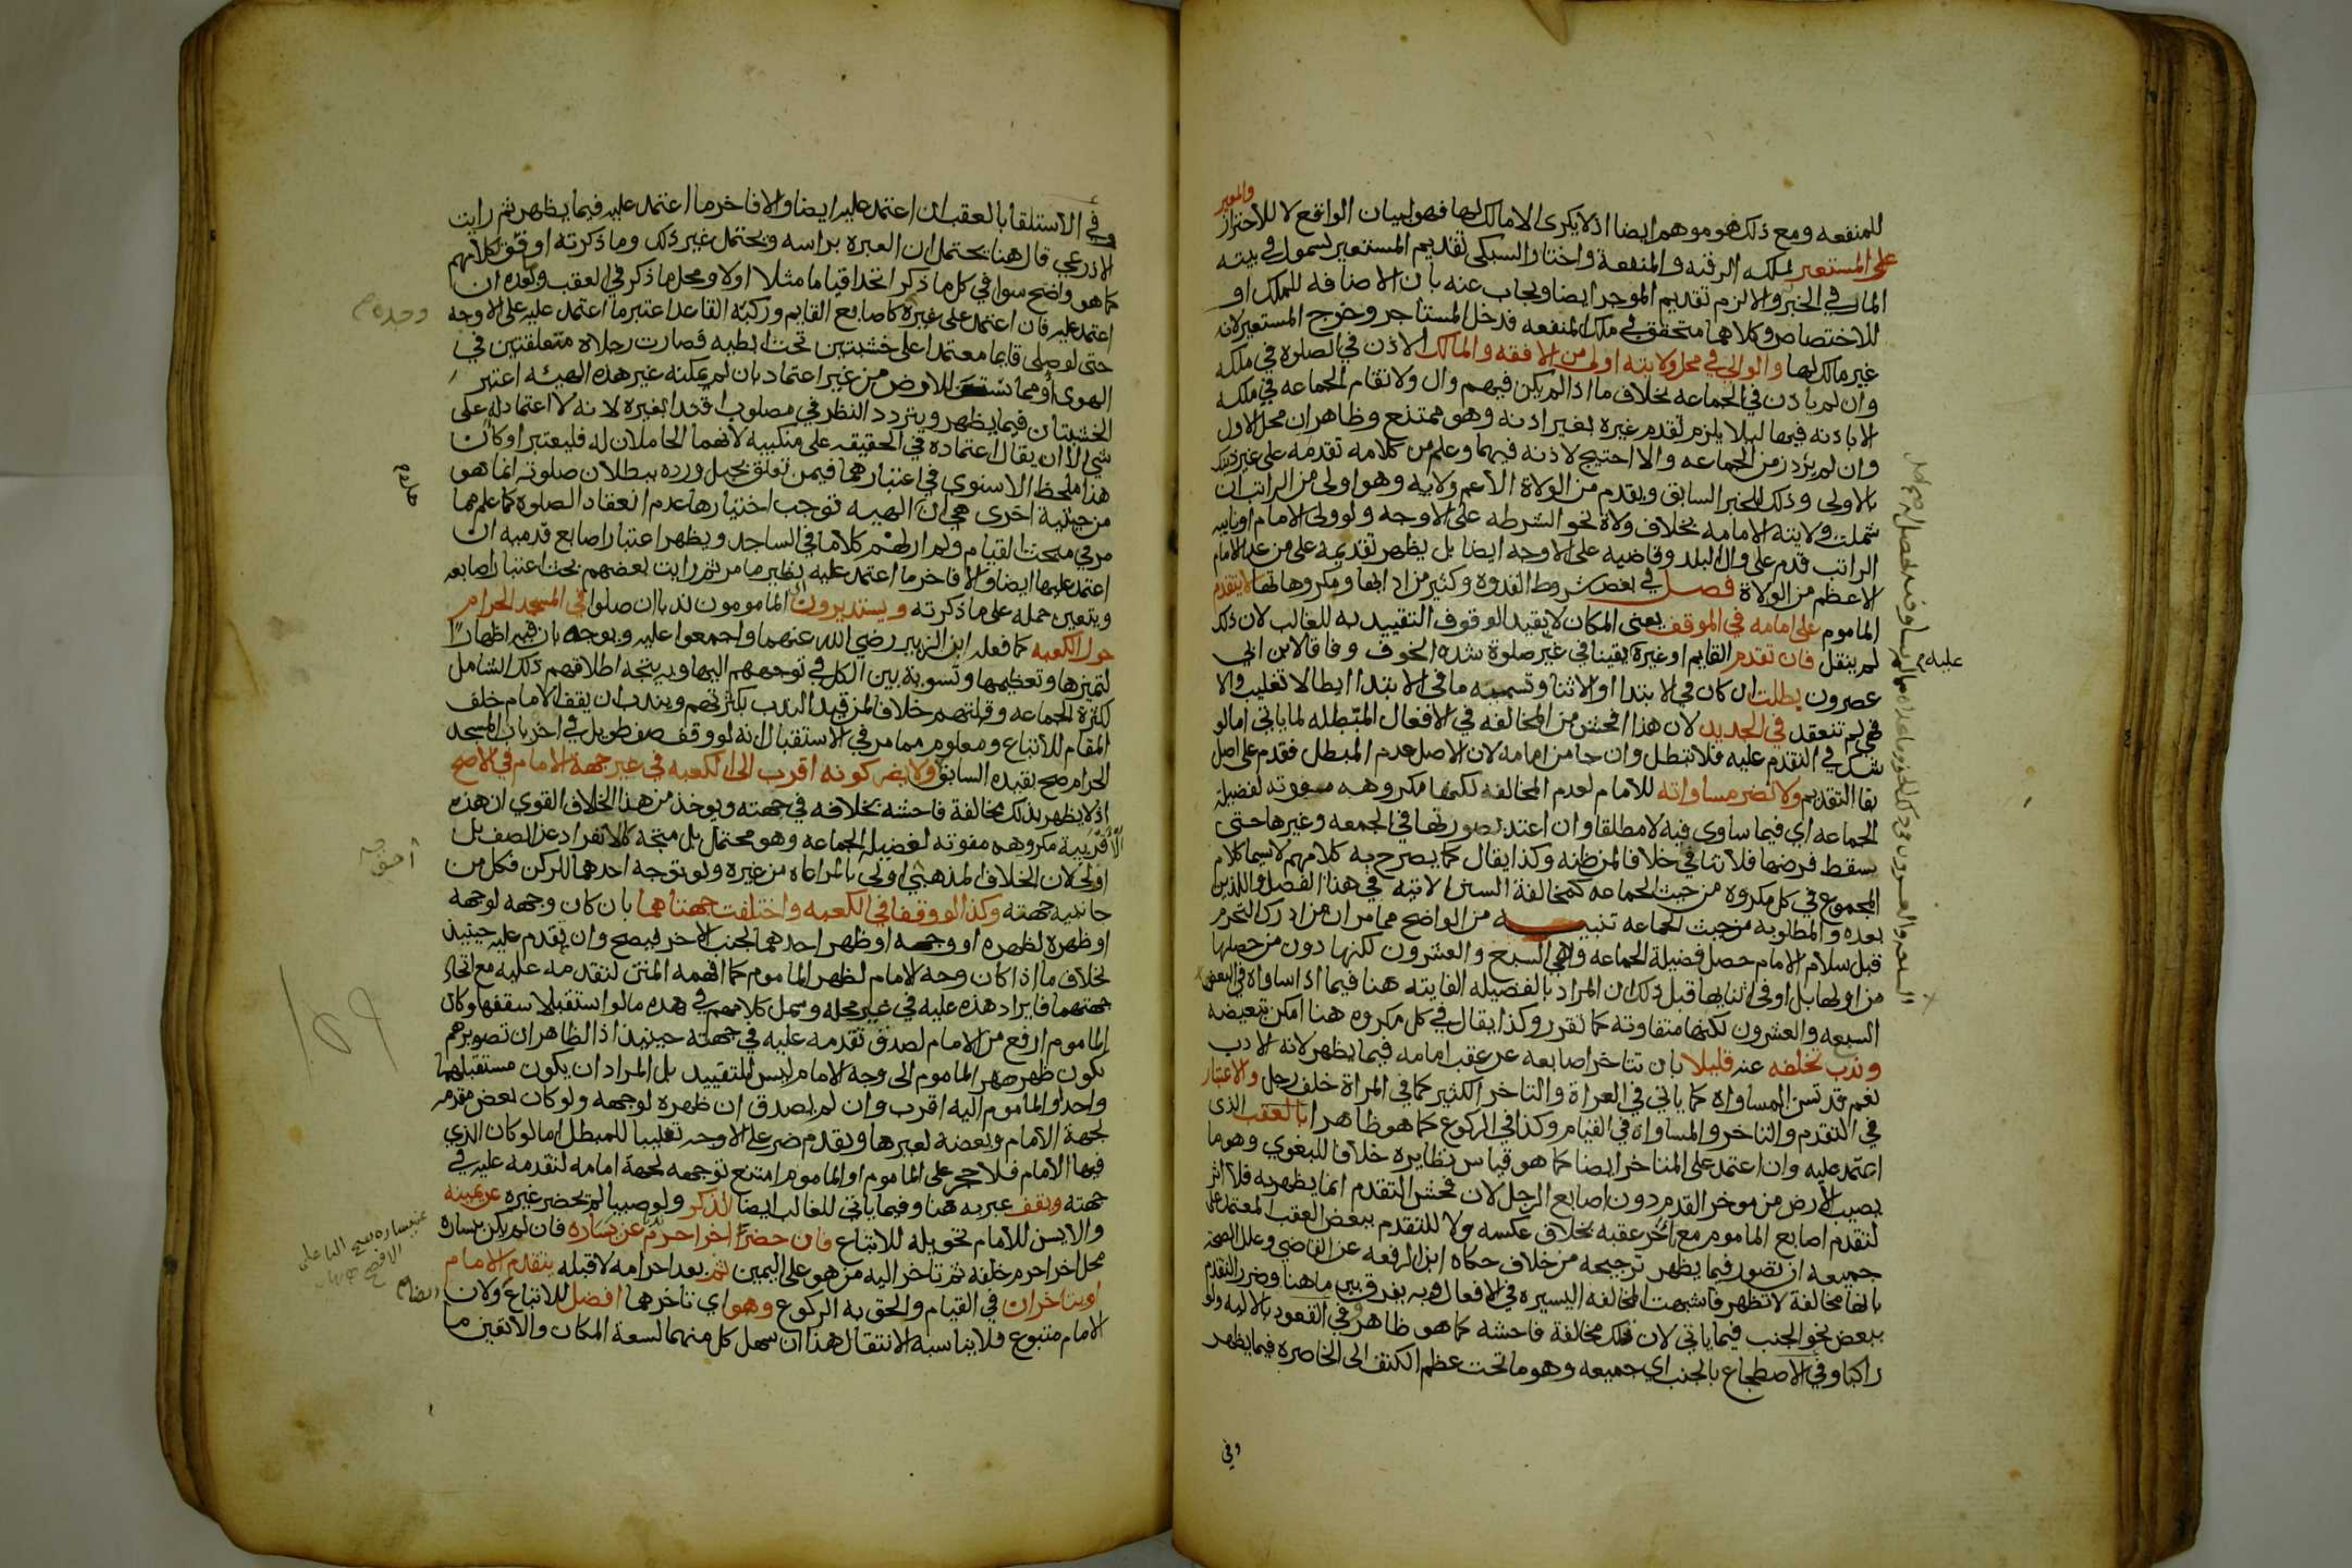 والمعير
للمنفعه ومع ذلك فهو موهم ايضا اذ لا يكرى الا مالك لها فهو لبيان الواقع لا للاحتراز
على المستعير لملكه الرقبه والمنفعة واختار السبكى تقديم المستعير لشموله في بيته
المار في الخبر والا لزم تقديم الموجر ايضا ويجاب عنه بان الاضافه للملك او
للاختصاص وكلاهما متحقق في ملك المنفعه فدخل المستاجر وخرج المستعير لانه
غير مالك لها والوالى في محل ولايته اولى من الافقه والمالك الاذن في الصلوة في ملكه
وان لم ياذن في الجماعه بخلاف ما اذا لم يكن فيهم وال ولا تقام الجماعه في ملكه
الا باذنه فيها ليلا يلزم تقدم غيره بغير اذنه وهو ممتنع وظاهر ان محل الاول
وان لم يزد زمن الجماعه والا احتيج لاذنه فيها وعلم من كلامه تقدمه على غير ذلك
بالاولى وذلك للخبر السابق ويقدم من الولاة الاعم ولايه وهو اولى من الراتب ان
شملت ولايته الامامه بخلاف ولاة نحو الشرطه على الاوجه ولو ولى الامام او نايبه
الراتب قدم على وال البلد وقاضيه على الاوجه ايضا بل يظهر تقديمه على من عدا الامام
الاعظم من الولاة فصل في بعض شروط القدوة وكثير من ادابها ومكروهاتها لا يتقدم
الماموم على امامه في الموقف يعنى المكان لا بقيد الوقوف التقييد به للغالب لان ذلك
لم ينقل فان تقدم القايم او غيره يقينا في غير صلوة شده الخوف وفاقا لابن ابي
عصرون بطلت ان كان في الابتدا او الاثنا وتسميته ما في الابتدا ابطالا تغليب والا
فهي لم تنعقد في الجديد لان هذا افحش من المخالفه في الافعال المبطله لما ياتي اما لو
شك في التقدم عليه فلا تبطل وان جا من امامه لان الاصل عدم المبطل فقدم على اصل
بقا التقديم ولا تضر مساواته للامام لعدم المخالفه لكنها مكروهه مفوته لفضيلة
الجماعه اي فيما ساوى فيه لا مطلقا وان اعتد بصورتها في الجمعه وغيرها حتى
يسقط فرضها فلا تنافي خلافا لمن ظنه وكذا يقال كما يصرح به كلامهم لاسيما كلام
المجموع في كل مكروه من حيث الجماعه كمخالفة السنن الاتيه في هذا الفصل واللذين
بعده والمطلوبه من حيث الجماعه تنبيه من الواضح مما مر ان من ادرك التحرم
قبل سلام الامام حصل فضيلة الجماعه وهي السبع والعشرون لكنها دون من حصلها
من اولها بل او في اثنايها قبل ذلك ان المراد بالفضيله الفايته هنا فيما اذا ساواه في البعض
السبعه والعشرون لكنها متفاوته كما تقرر وكذا يقال في كل مكروه هنا امكن تبعيضه
وندب تخلفه عنه قليلا بان تتاخر اصابعه عن عقب امامه فيما يظهر لانه الادب
نعم قد تسن المساواه كما ياتي في العراة والتاخر الكثير كما في المراة خلف رجل والاعتبار
في التقدم والتاخر والمساواة في القيام وكذا في الركوع كما هو ظاهر بالعقب الذى
اعتمد عليه وان اعتمد على المتاخر ايضا كما هو قياس نظايره خلافا للبغوي وهو ما
يصيب الارض من موخر القدم دون اصابع الرجل لان فحش التقدم انما يظهر به فلا اثر
لتقدم اصابع الماموم مع تاخر عقبه بخلاف عكسه ولا للتقدم ببعض العقب المعتمد على
جميعه ان تصور فيما يظهر ترجيحه من خلاف حكاه ابن الرفعه عن القاضي وعلل الصحة
بانها مخالفة لا تظهر فاشبهت المخالفه اليسيره في الافعال وبه يفرق بين ما هنا وضرر التقدم
ببعض نحو الجنب فيما ياتي لان تلك مخالفة فاحشه كما هو ظاهر وفي القعود بالاليه ولو
راكبا وفي الاضطجاع بالجنب اي جميعه وهو ما تحت عظم الكتف الى الخاصره فيما يظهر
وفي
عليه
وفي الاستلقا بالعقب ان اعتمد عليه ايضا والا فاخر ما اعتمد عليه فيما يظهر ثم رايت
الاذرعي قال هنا يحتمل ان العبره براسه ويحتمل غير ذلك وما ذكرته اوفق بكلامهم
كما هو واضح سوا في كل ما ذكر اتحدا قياما مثلا اولا ومحل ما ذكر في العقب وبعده ان
اعتمد عليه فان اعتمد على غيره كاصابع القايم وركبة القاعد اعتبر ما اعتمد عليه على الاوجه
حتى لو صلى قايما معتمدا على خشبتين تحت ابطيه فصارت رجلاه متعلقتين في
الهوى او مما ستين للارض من غير اعتماد بان لم يمكنه غير هذه الهيئه اعتبر
الخشبتان فيما يظهر ويتردد النظر في مصلوب اقتدا بغيره لانه لا اعتماد له على
شي الا ان يقال اعتماده في الحقيقه على منكبيه لانهما الحاملان له فليعتبر او كان
هذا ملحظ الاسنوي في اعتبارهما فيمن تعلق بحبل ورده ببطلان صلوته انما هو
من حيثية اخرى هي ان الهيه توجب اختيارها عدم انعقاد الصلوة كما علم مما
مر في مبحث القيام ولم ار لهم كلاما في الساجد ويظهر اعتبار اصابع قدميه ان
اعتمد عليها ايضا والا فاخر ما اعتمد عليه نظير ما مر ثم رايت بعضهم بحث اعتبار اصابعه
ويتعين حمله على ما ذكرته ويستديرون اي المامومون ندبا ان صلوا في المسجد الحرام
حول الكعبه كما فعله ابن الزبير رضي الله عنهما واجمعوا عليه ويوجه بان فيه اظهارا
لتميزها وتعظيمها وتسوية بين الكل في توجههم اليها وبه يتجه اطلاقهم ذلك الشامل
لكثرة الجماعه وقلتهم خلافا لمن قيد الندب بكثرتهم ويندب ان يقف الامام خلف
المقام للاتباع ومعلوم مما مر في الاستقبال انه لو وقف صف طويل في اخريات المسجد
الحرام صح بقيده السابق ولا يضر كونه اقرب الى الكعبه في غير جهة الامام في الاصح
اذ لا يظهر بذلك مخالفة فاحشه بخلافه في جهته ويوخذ من هذا الخلاف القوي ان هذه
الاقربية مكروهه مفوته لفضيله الجماعه وهو محتمل بل متجه كالانفراد عن الصف بل
اولى لان الخلاف المذهبي اولى بالمراعاه من غيره ولو توجه احدهما للركن فكل من
جانبيه جهته وكذا لو وقفا في الكعبه واختلفت جهتاهما بان كان وجهه لوجهه
او ظهره لظهره او وجهه او ظهر احدهما لجنب الاخر فيصح وان تقدم عليه حينيذ
بخلاف ما اذا كان وجه الامام لظهر الماموم كما افهمه المتن لتقدمه عليه مع اتحاد
جهتهما فايراد هذه عليه في غير محله وشمل كلامهم في هذه ما لو استقبلا سقفها وكان
الماموم ارفع من الامام لصدق تقدمه عليه في جهته حينيذ اذ الظاهر ان تصويرهم
بكون ظهر ظهر الماموم الى وجه الامام ليس للتقييد بل المراد ان يكون مستقبلهما
واحدا والماموم اليه اقرب وان لم يصدق ان ظهره لوجهه ولو كان بعض مقدمه
لجهة الامام وبعضه لغيرها وتقدم ضر على الاوجه تغليبا للمبطل اما لو كان الذي
فيها الامام فلا حجر على الماموم او الماموم امتنع توجهه لجهة امامه لتقدمه عليه في
جهته ويقف عبر به هنا وفيما ياتي للغالب ايضا الذكر ولو صبيا لم يحضر غيره عن يمينه
والا يسن للامام تحويله للاتباع فان حضر اخر احرم ندبا عن يساره فان لم يكن بيساره
محل اخر احرم خلفه ثم تاخر اليه من هو على اليمين ثم بعد احرامه لا قبله يتقدم الامام
او يتاخران في القيام والحق به الركوع وهو اي تاخرهما افضل للاتباع ولان
الامام متبوع فلا يناسبه الانتقال هذا ان سهل كل منهما لسعة المكان والا تعين ما